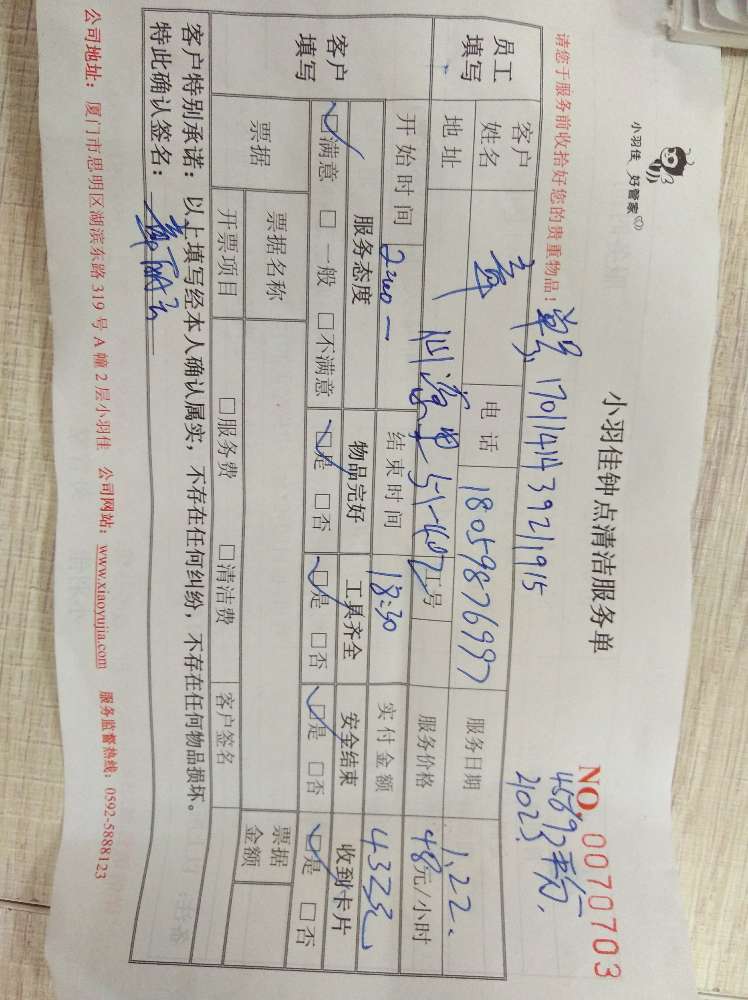 小羽佳 好管家
小羽佳钟点清洁服务单
NO. 0070703
请您于服务前收拾好您的贵重物品！
单号 17011414392 11915
2023
员工填写
客户姓名 章 电话 18059876997 服务日期 1.22.
地址 工号 服务价格 48元/小时
客户填写
开始时间 结束时间 18:30 实付金额 432元
服务态度 物品完好 工具齐全 安全结束 收到卡片
☑满意 □一般 □不满意 ☑是 □否 ☑是 □否 ☑是 □否 ☑是 □否
票据 票据名称 票据金额
开票项目 □服务费 □清洁费 客户签名
客户特别承诺：以上填写经本人确认属实，不存在任何纠纷，不存在任何物品损坏。
特此确认签名：
公司地址：厦门市思明区湖滨东路 319 号 A 幢 2 层小羽佳 公司网站：www.xiaoyujia.com 服务监督热线：0592-5888123